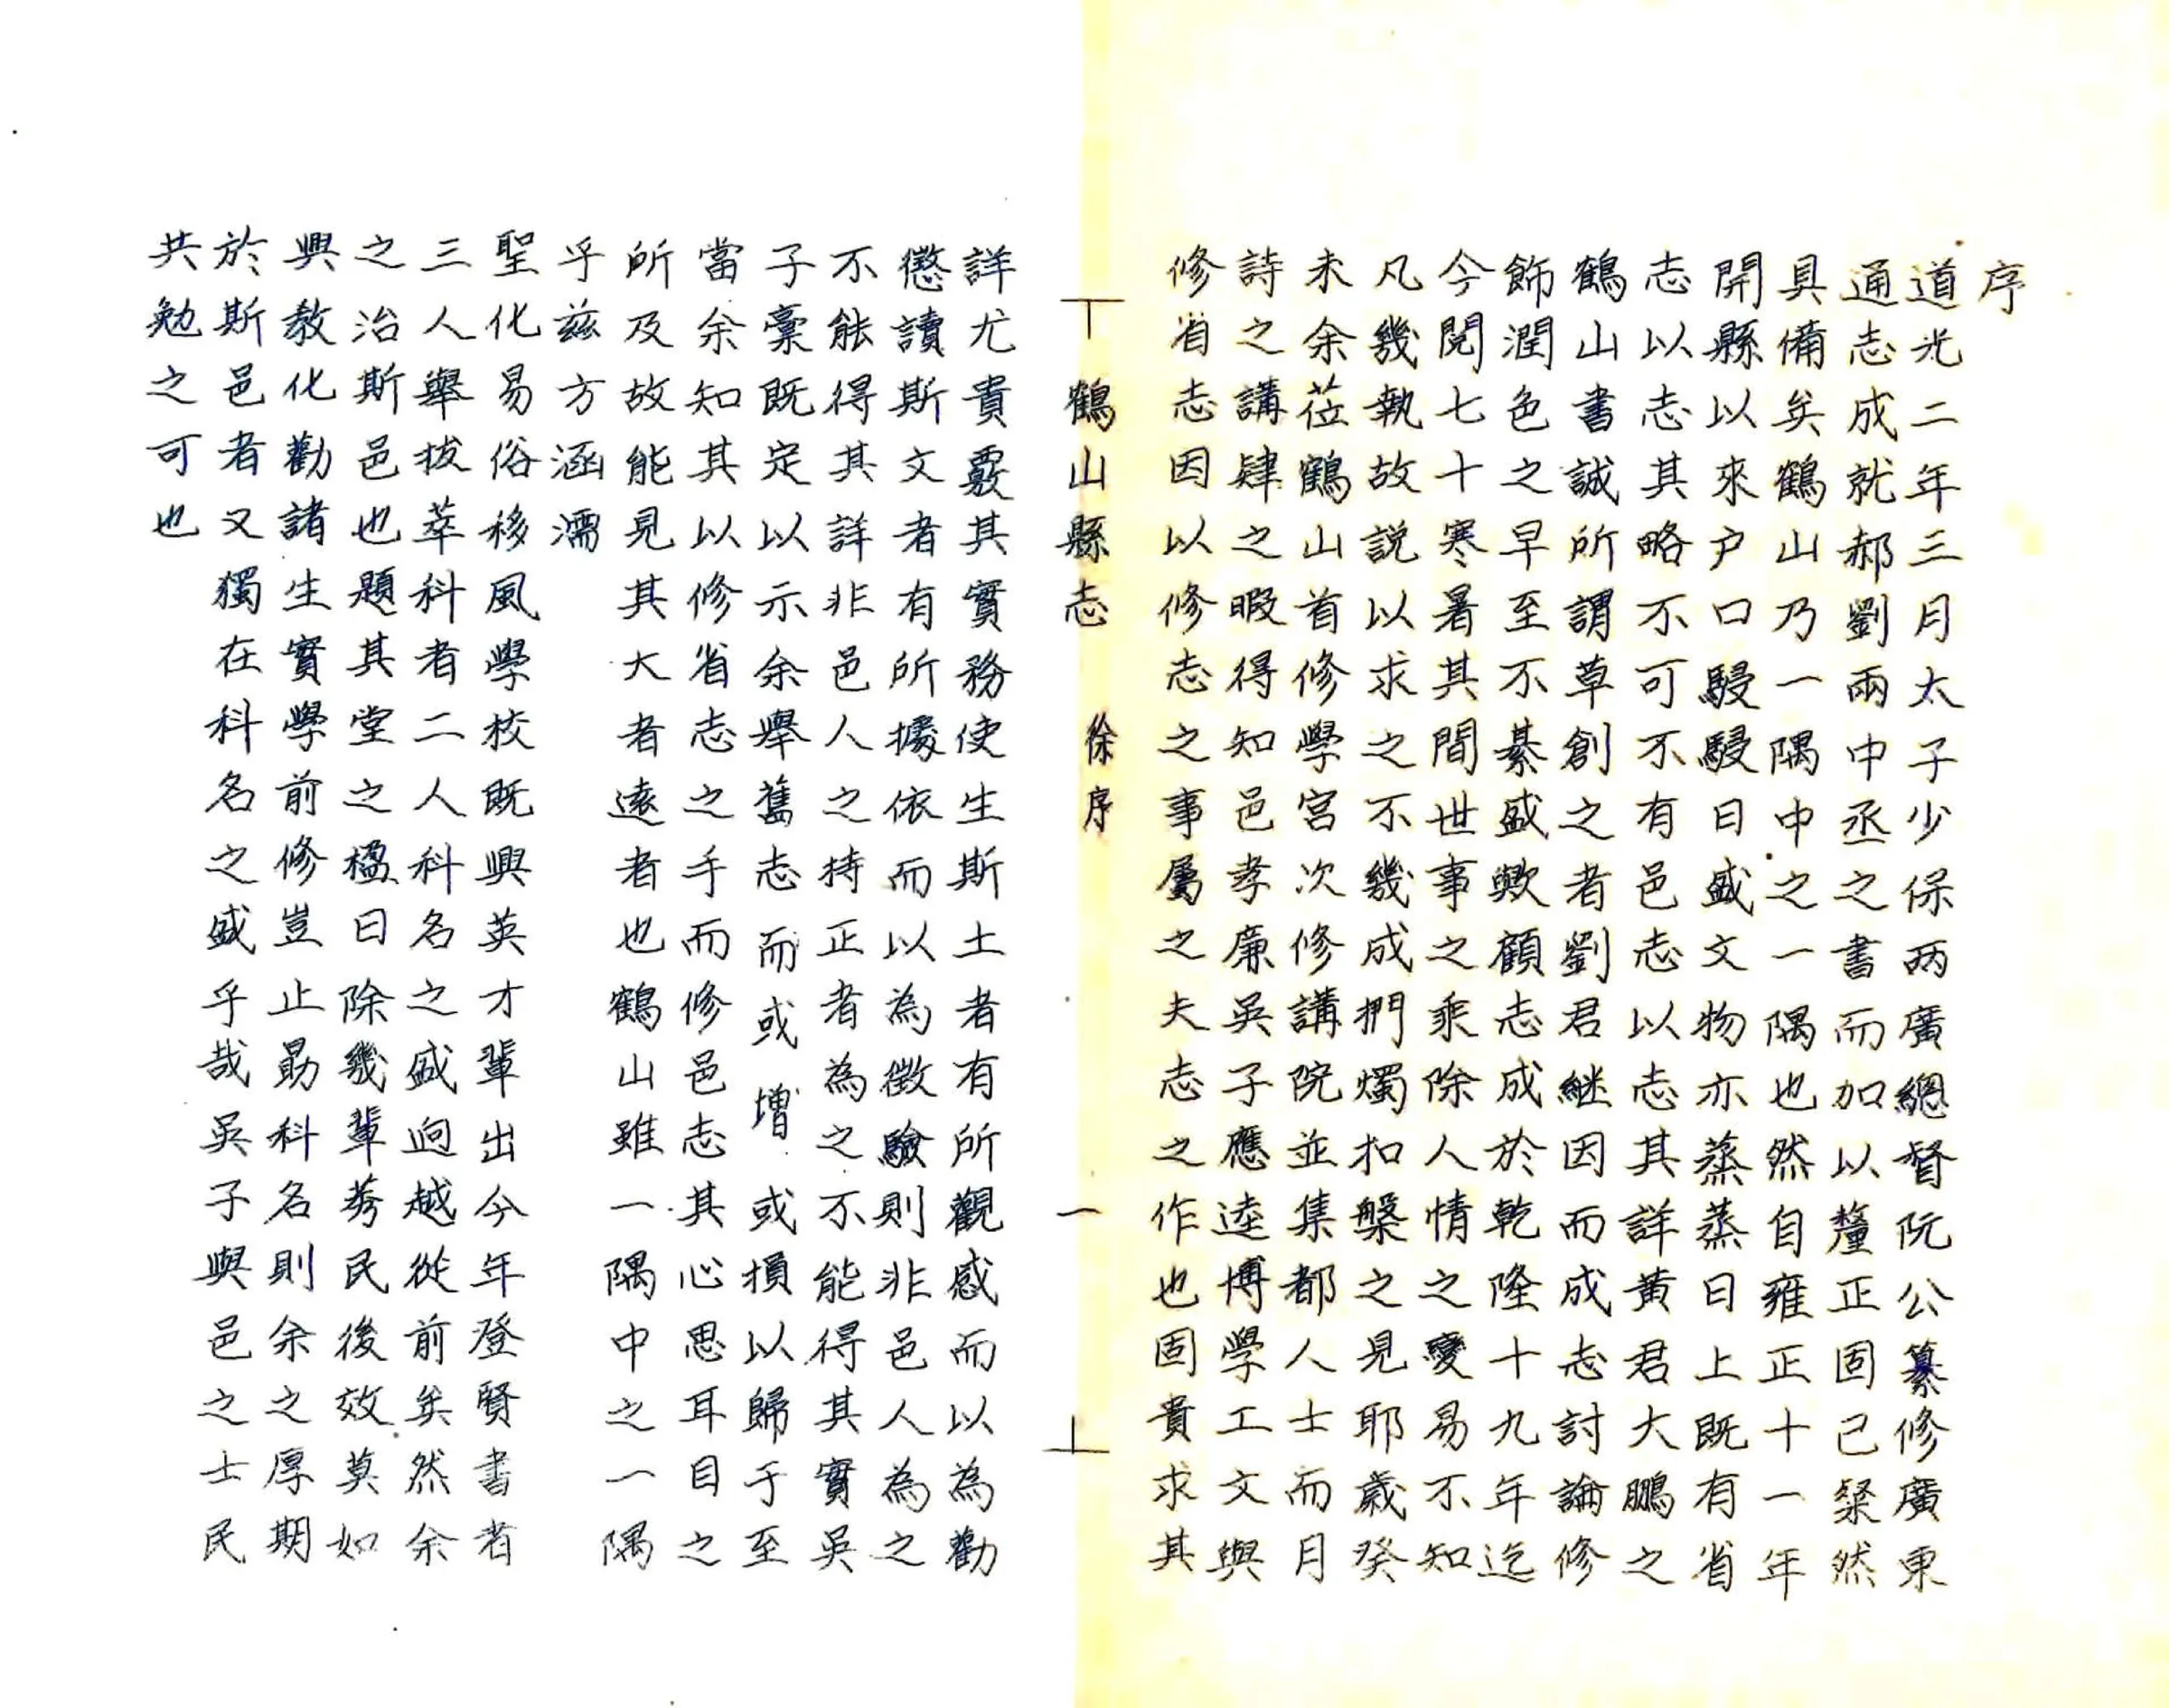 序
道光二年三月太子少保两廣總督阮公纂修廣東
通志成就郝劉兩中丞之書而加以釐正固已粲然
具備矣鶴山乃一隅中之一隅也然自雍正十一年
開縣以來户口駸駸日盛文物亦蒸蒸日上既有省
志以志其略不可不有邑志以志其詳黃君大鵬之
鶴山書誠所謂草創之者劉君継因而成志討論修
飾潤色之早至不綦盛歟顧志成於乾隆十九年迄
今閱七十寒暑其間世事之乘除人情之變易不知
凡幾執故説以求之不幾成捫燭扣槃之見耶歲癸
未余莅鶴山首修學宮次修講院並集都人士而月
詩之講肆之暇得知邑孝廉吳子應逵博學工文與
修省志因以修志之事屬之夫志之作也固貴求其
鶴山縣志 徐序 一
詳尤貴覈其實務使生斯土者有所觀感而以為勸
懲讀斯文者有所據依而以為徵驗則非邑人為之
不能得其詳非邑人之持正者為之不能得其實吳
子稾既定以示余舉舊志而或增或損以歸于至
當余知其以修省志之手而修邑志其心思耳目之
所及故能見其大者遠者也鶴山雖一隅中之一隅
乎茲方涵濡
聖化易俗移風學校既興英才輩出今年登賢書者
三人舉拔萃科者二人科名之盛迥越從前矣然余
之治斯邑也題其堂之楹曰除幾輩莠民後效莫如
興教化勸諸生實學前修豈止勗科名則余之厚期
於斯邑者又獨在科名之盛乎哉吳子與邑之士民
共勉之可也